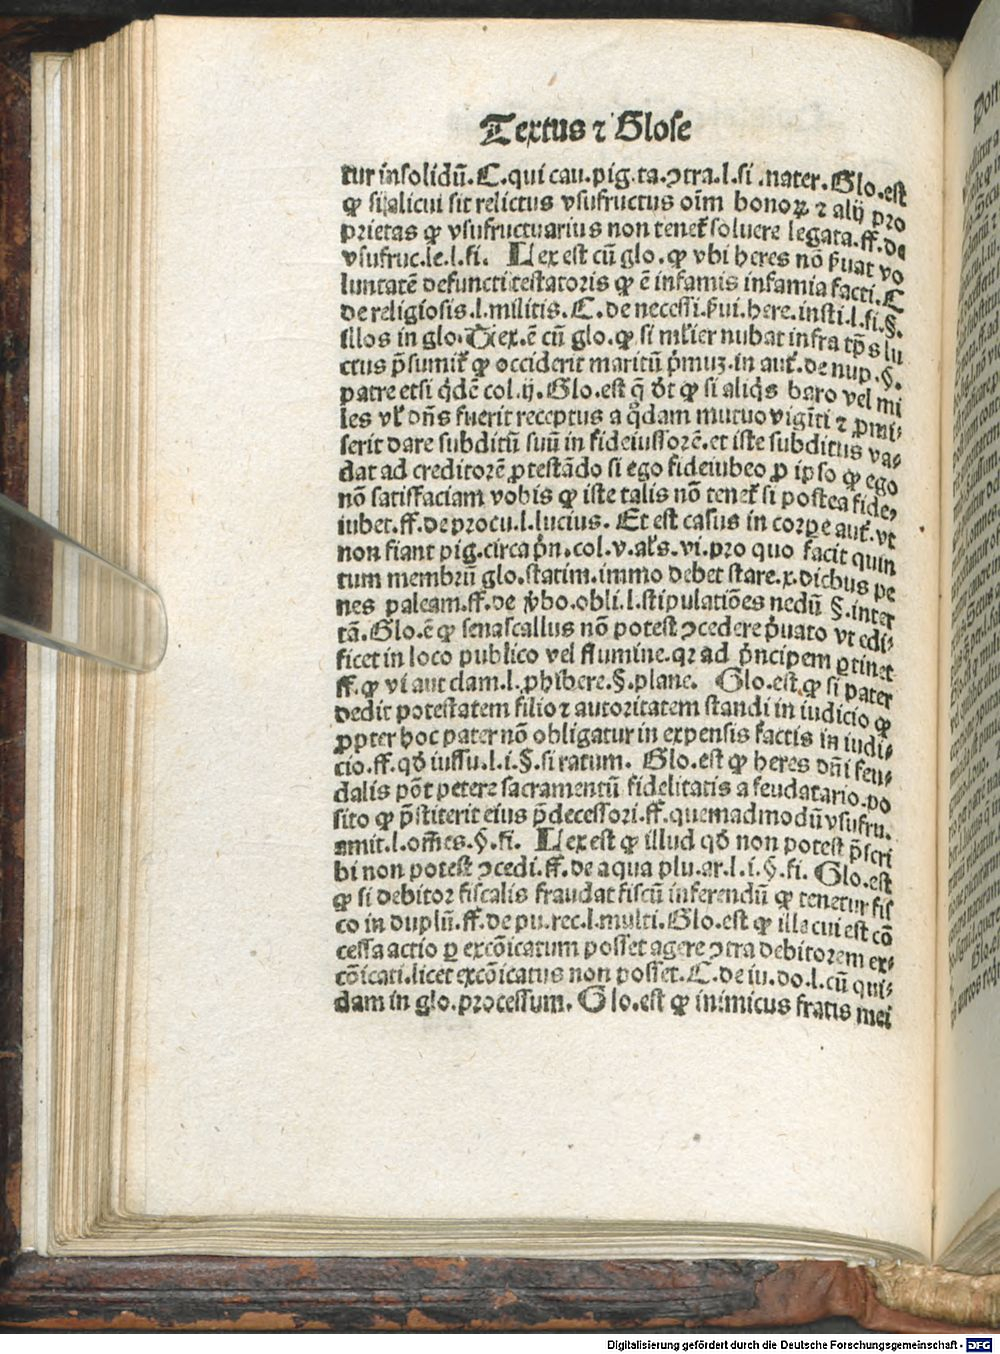 Textus ⁊ Glose
tur insolidū. C. qui cau. pig. ta. ꝯtra. l. si .nater. Glo. est
ꝙ si alicui sit relictus vsufructus oīm bonoꝝ ⁊ alij pro
prietas ꝙ vsufructuarius non tenet᷑ soluere legata. ff. de
vsufruc. le. l. fi. Lex est cū glo. ꝙ vbi heres nō ẜuat vo
luntatē defuncti testatoris ꝙ ē infamis infamia facti. C
de religiosis. l. militis. C. de necessi. ẜui. here. insti. l. fi. §.
illos in glo. Tex. ē cū glo. ꝙ si ml̓ier nubat infra tp̄s lu
ctus p̄sumit᷑ ꝙ occiderit maritū p̓muꝫ. in aut̓. de nup. §.
patre etsi q̓dē col. ij. Glo. est q̄ dt̓ ꝙ si aliq̓s baro vel mi
les vl̓ dn̄s fuerit receptus a q̓dam mutuo vigīti ⁊ ꝓmi⸗
serit dare subditū suū in fideiussorē. et iste subditus va⸗
dat ad creditorē ꝓtestādo si ego fideiubeo ꝓ ipso ꝙ ego
nō satisfaciam vobis ꝙ iste talis nō tenet᷑ si postea fide⸗
iubet. ff. de procu. l. lucius. Et est casus in corꝑe aut̓. vt
non fiant pig. circa pn̄. col. v. al̓s. vi. pro quo facit quin
tum membrū glo. statim. immo debet stare. x. dictbus pe
nes paleam. ff. de v̓bo. obli. l. stipulatiōes nedū §. inter
tā. Glo. ē ꝙ senascallus nō potest ꝯcedere p̓uato vt edi⸗
ficet in loco publico vel flumine. qꝛ ad p̓ncipem ꝑtinet
ff. ꝙ vi aut clam. l. ꝓhibere. §. plane. Glo. est. ꝙ si pater
dedit potestatem filio ⁊ autoritatem standi in iudicio ꝙ
ꝓpter hoc pater nō obligatur in expensis factis in iudi⸗
cio. ff. qd̓ iussu. l. i. §. si ratum. Glo. est ꝙ heres dn̄i feu⸗
dalis pōt petere sacramentū fidelitatis a feudatario. po
sito ꝙ p̄stiterit eius p̄decessori. ff. quemadmodū vsufru.
amit. l. om̄es. §. fi. Lex est ꝙ illud qd̓ non potest p̄scri
bi non potest ꝯcedi. ff. de aqua plu. ar. l. i. §. fi. Glo. est
ꝙ si debitor fiscalis fraudat fiscū inferendū ꝙ tenetur fis
co in duplū. ff. de pu. rec. l. multi. Glo. est ꝙ ille cui est cō
cessa actio ꝑ excōicatum posset agere ꝯtra debitorem ex⸗
cōicati. licet excōicatus non posset. C. de iu. do. l. cū qui⸗
dam in glo. processum. Glo. est ꝙ inimicus fratris mei
Digitalisierung gefördert durch die Deutsche Forschungsgemeinschaft - DFG